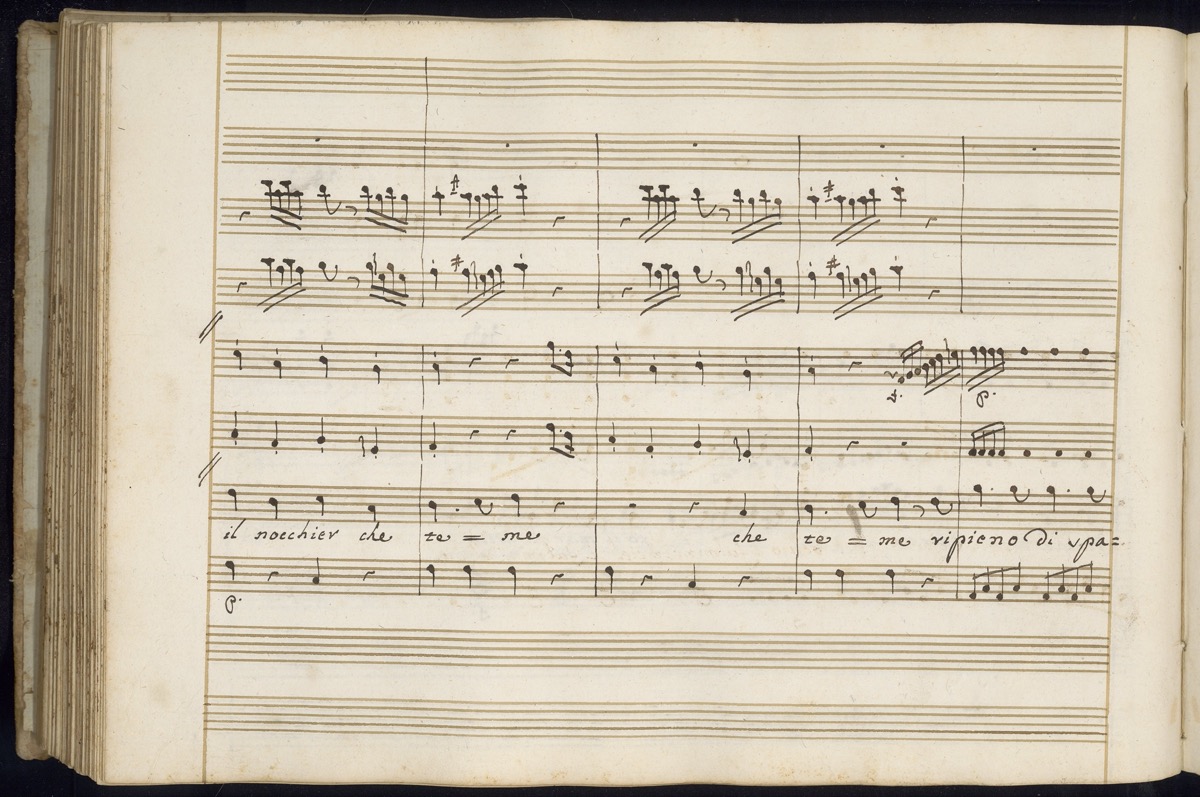 f. p.
il nocchier che te = me che te = me ripieno di spa=
p.